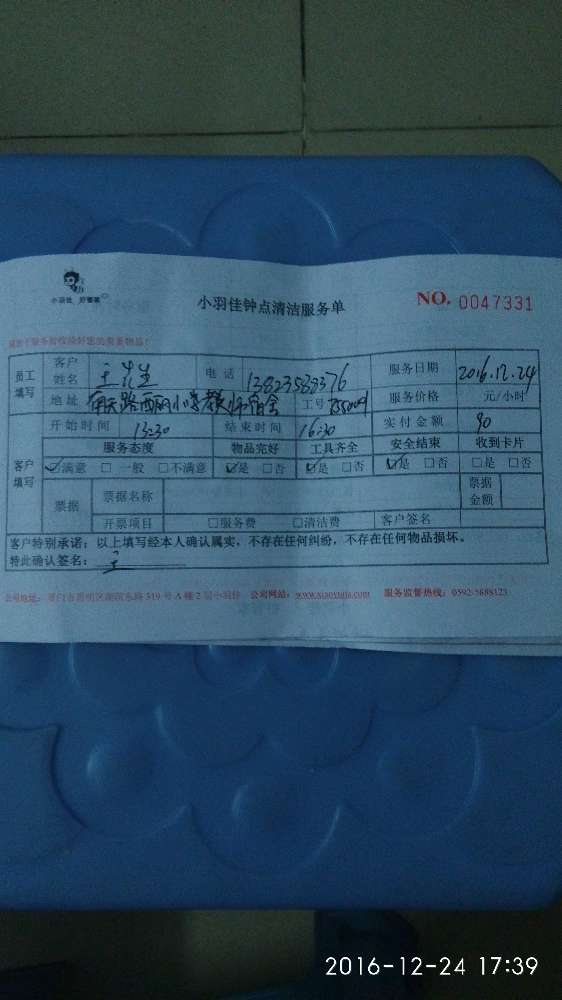 小羽佳 好管家
小羽佳钟点清洁服务单
NO. 0047331
员工填写
客户姓名 王先生 电话 13823583376 服务日期 2016.12.24
地址 小学教师宿舍 工号 服务价格 元/小时
开始时间 13:30 结束时间 16:30 实付金额 90
客户填写
服务态度 物品完好 工具齐全 安全结束 收到卡片
☑满意 □一般 □不满意 ☑是 □否 ☑是 □否 ☑是 □否 □是 □否
票据 票据名称 票据金额
开票项目 □服务费 □清洁费 客户签名
客户特别承诺：以上填写经本人确认属实，不存在任何纠纷，不存在任何物品损坏。
特此确认签名： 王
公司地址：厦门市思明区湖滨东路319号A幢2层小羽佳 公司网站：www.xiaoyujia.com 服务监督热线：0592-5688123
2016-12-24 17:39